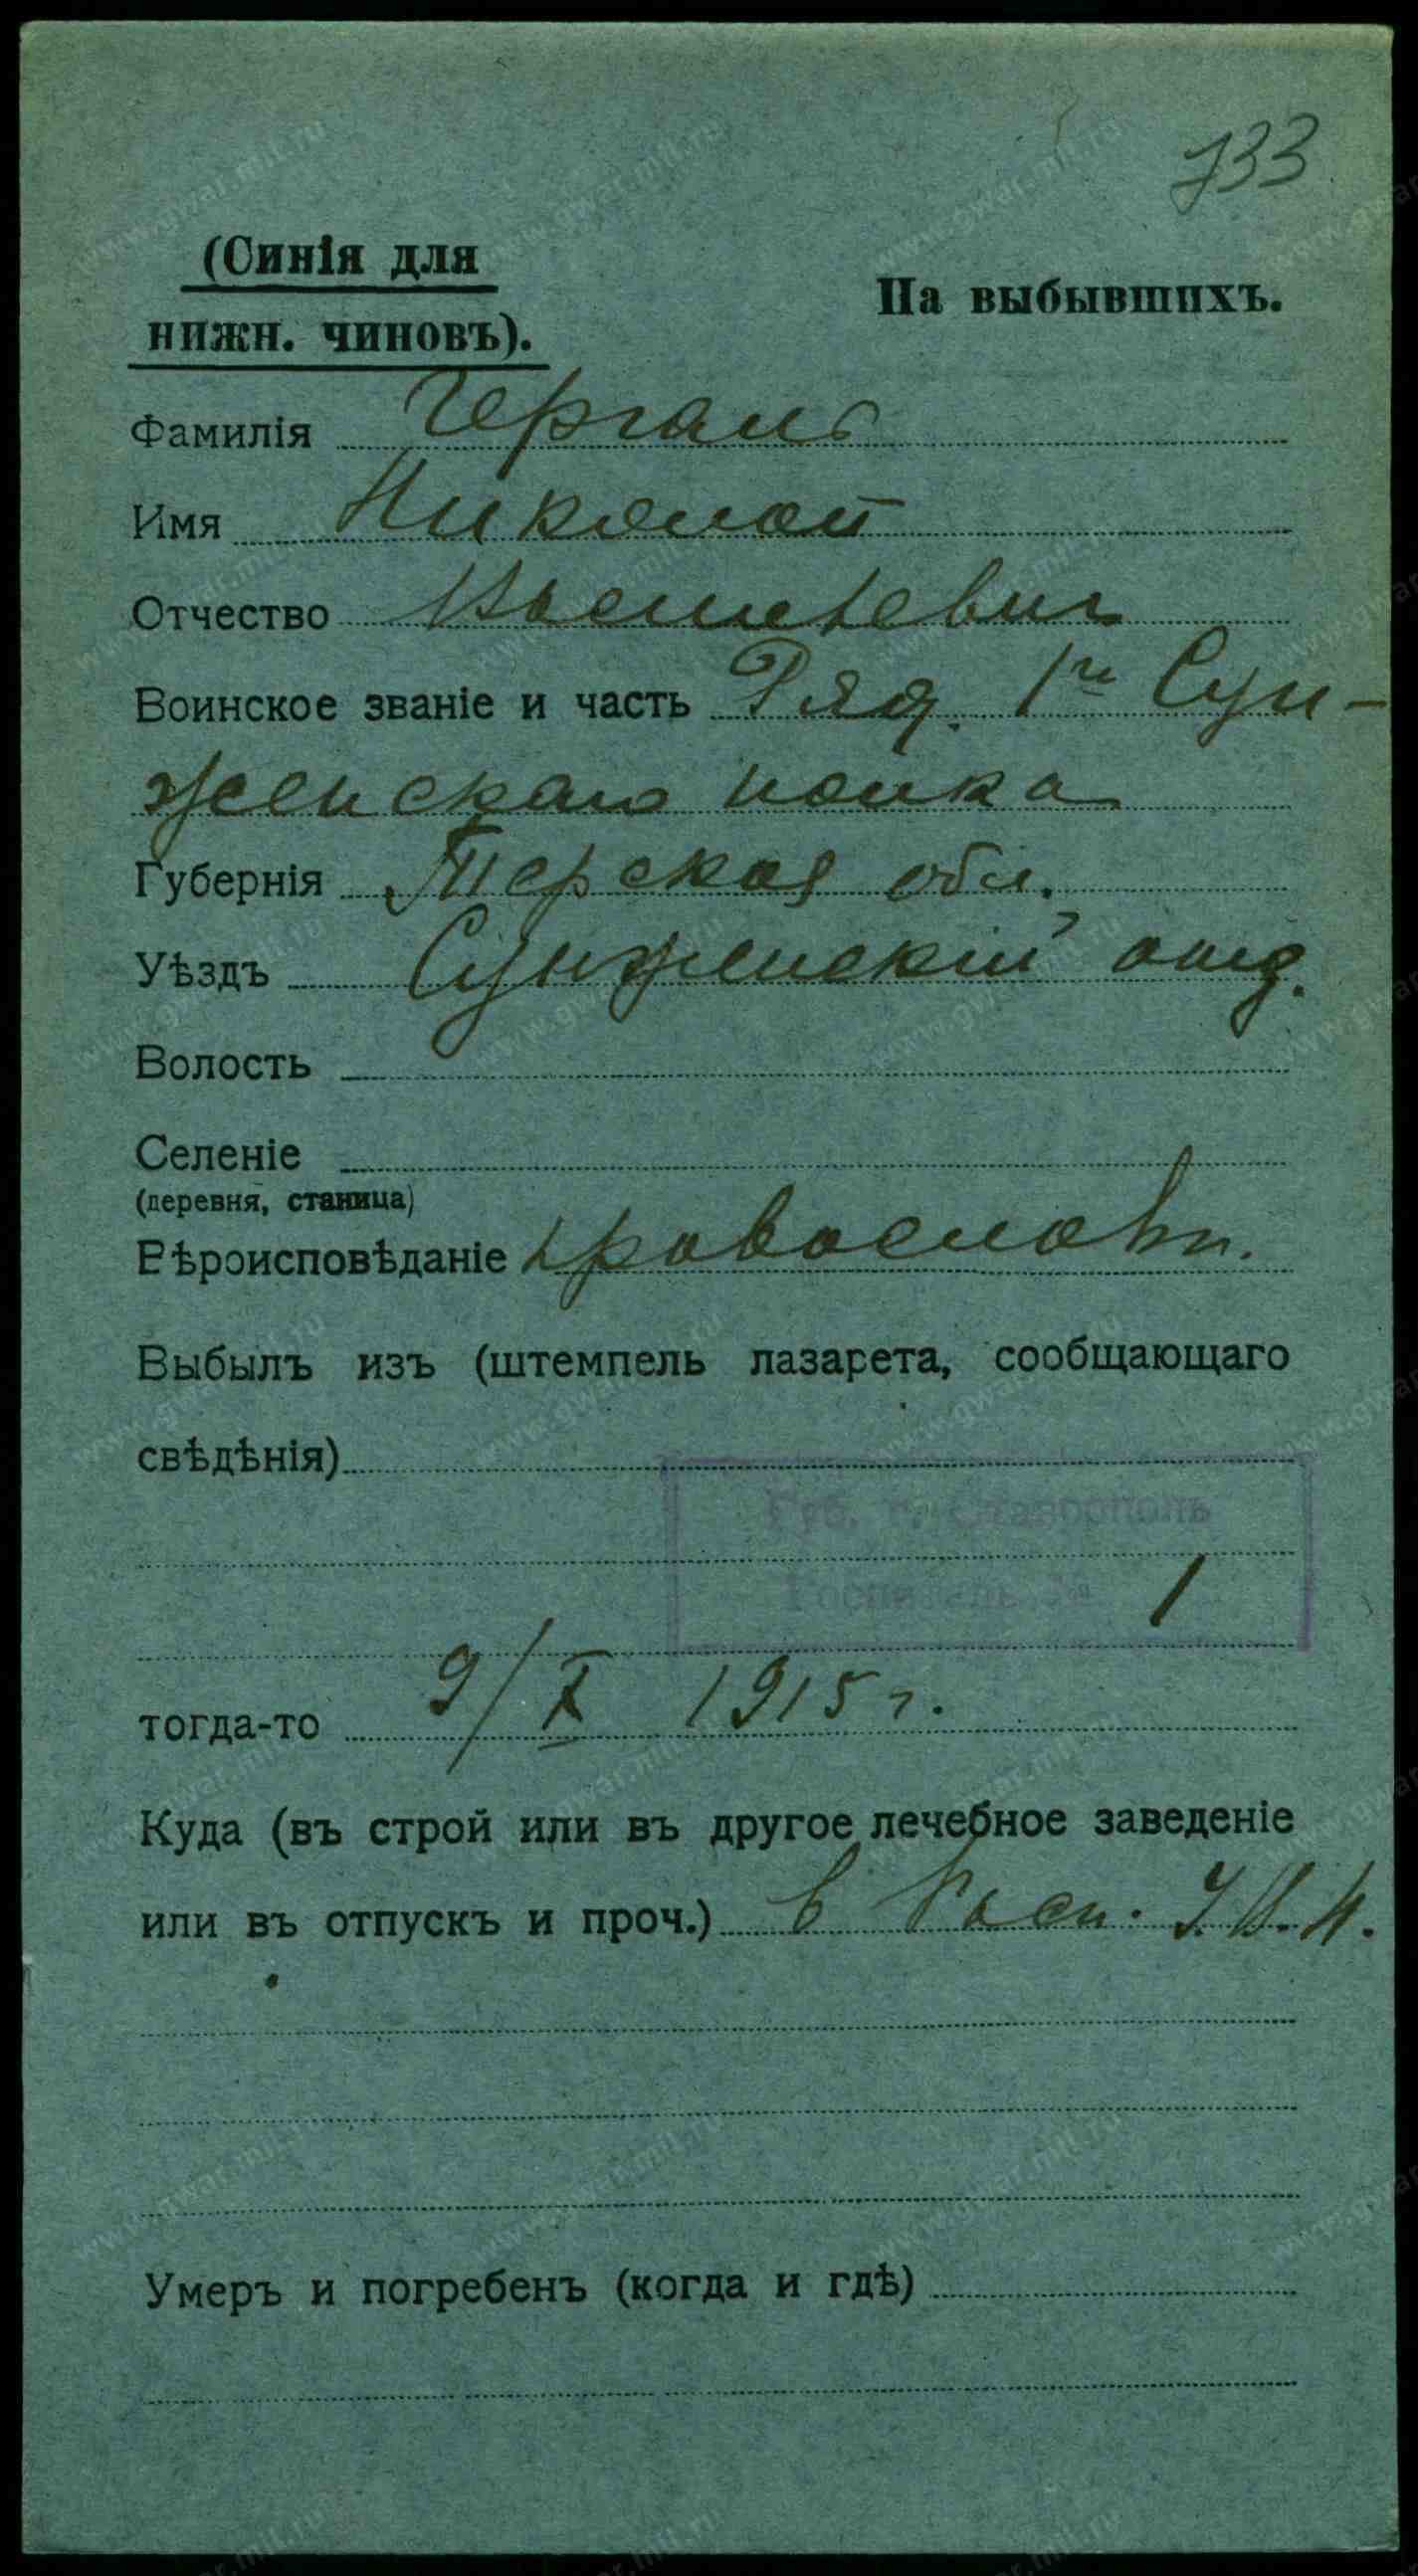 733
(Синія для
нижн. чиновъ).
На выбывшихъ.
Фамилія
Имя Николай
Отчество Васильевич
Воинское званіе и часть Ряд. 1го Сун-
женскаго полка
Губернія Терская обл.
Уѣздъ Сунженскій отд.
Волость
Селеніе
(деревня, станица)
Вѣроисповѣданіе православн.
Выбылъ изъ (штемпель лазарета, сообщающаго
свѣдѣнія)
Губ. г. Ставрополь
Госпиталь № 1
тогда-то 9/X 1915 г.
Куда (въ строй или въ другое лечебное заведеніе
или въ отпускъ и проч.) в
Умеръ и погребенъ (когда и гдѣ)
www.gwar.mil.ru